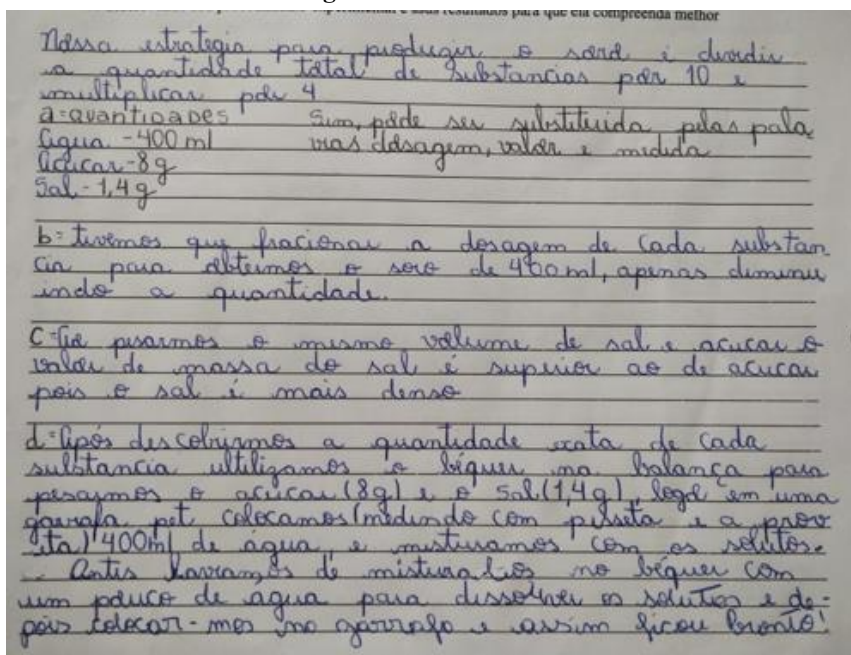 experimental e seus resultados para que ela compreenda melhor
Nossa estratégia para produzir o soro é dividir
a quantidade total de substancias por 10 e
multiplicar por 4
a = QUANTIDADES Sim, pode ser substituida pelas pala
Água - 400 ml vras dosagem, valor e medida
Açúcar - 8 g
Sal - 1,4 g
b = tivemos que fracionar a dosagem de cada substan
cia para obtermos o soro de 400 ml, apenas diminu
indo a quantidade.
C = Se pesarmos o mesmo volume de sal e acucar o
valor de massa do sal é superior ao de acucar
pois o sal é mais denso
d = Após descobrirmos a quantidade exata de cada
substancia ultilizamos o béquer na balança para
pesarmos o acúcar (8g) e o sal (1,4 g), logo em uma
garrafa pet colocamos (medindo com piseta e a prov
eta) 400ml de água, e misturamos com os solutos.
Antes haviamos de mistura-los no béquer com
um pouco de agua para dissolver os solutos e de-
pois colocar-mos na garrafa e assim ficou pronto!